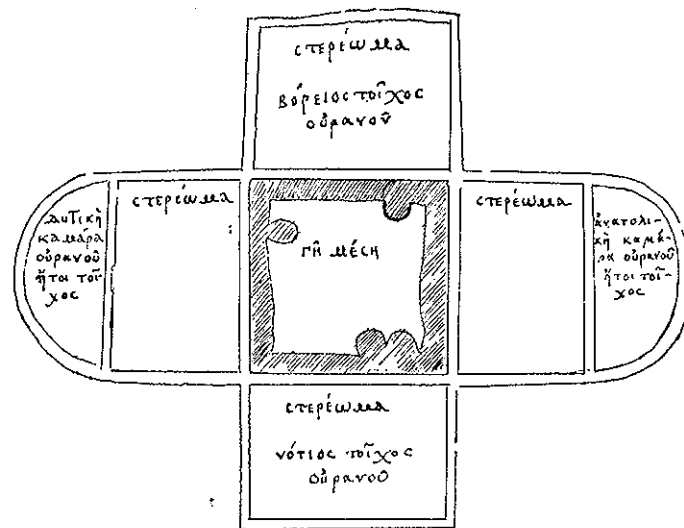 στερέωμα
βόρειος τοῖχος
οὐρανοῦ
δυτικὴ
καμάρα
οὐρανοῦ
ἤτοι τοῖ-
χος
στερέωμα
γῆ μέση
στερέωμα
ἀνατολι-
κὴ καμά-
ρα οὐρανοῦ
ἤτοι τοῖ-
χος
στερέωμα
νότιος τοῖχος
οὐρανοῦ